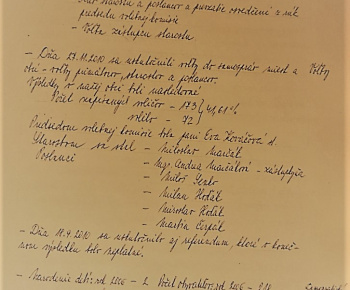 starostu a poslancov a prevzatie osvedčení z rúk
predsedu volebnej komisie
- Voľba zástupcu starostu
- Dňa 27.11.2010 sa uskutočnili voľby do samospráv miest a Voľby
obcí - voľby primátorov, starostov a poslancov.
Výsledky v našej obci boli nasledovné
Počet zapísaných voličov - 173 41,61%
volilo - 72
Predsedom volebnej komisie bola pani Eva Kováčová
Starostom sa stal - Miloslav
Poslanci - Mgr. Andrea - zástupkyňa
- Miloš
- Milan Hoľák
- Miroslav Hoľák
- Martin
- Dňa 18.9.2010 sa uskutočnilo aj referendum, ktoré v koneč-
nom výsledku bolo neplatné.
- Narodenie detí: rok 2006 - 2 Počet obyvateľov rok 2006 - 218